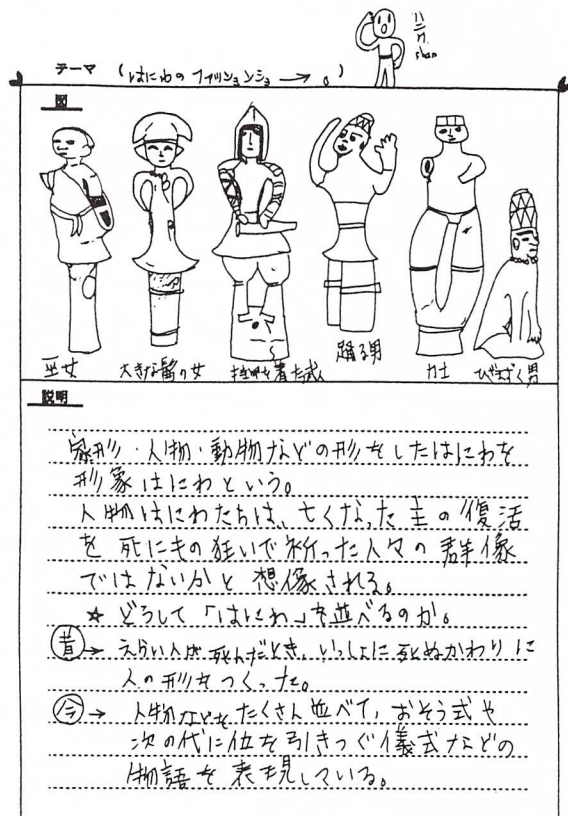 ハニワ
shan
テーマ (はにわの ファッションショー。)
図
巫女
大きな髷の女
挂甲を着た武人
踊る男
力士
ひざまずく男
説明
家形・人物・動物などの形をしたはにわを
形象はにわという。
人物はにわたちは、亡くなった主の復活
を死にもの狂いで祈った人々の群像
ではないかと想像される。
☆ どうして「はにわ」を並べるのか。
昔→ えらい人が死んだとき、いっしょに死ぬかわりに
人の形をつくった。
今→ 人物などをたくさん並べて、おそう式や
次の代に位を引きつぐ儀式などの
物語を表現している。